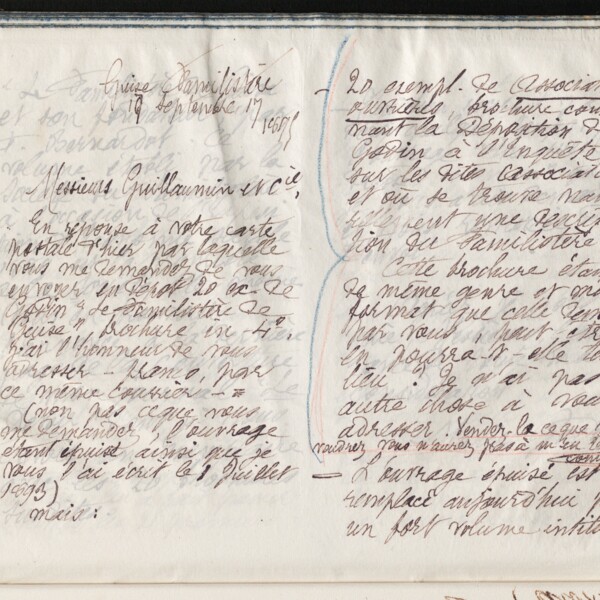 Guise Familistère
19 septembre 17
Messieurs Guillaumin et Cie,
En réponse à votre carte
postale d'hier par laquelle
vous me demandez de vous
envoyer en dépôt 20 ex. de
Godin "Le Familistère de
Guise" brochure in-4°.
j'ai l'honneur de vous
adresser - franco, par
ce même courrier - =
(non pas ce que vous
me demandez, l'ouvrage
étant épuisé ainsi que je
vous l'ai écrit le 1 juillet
1893)
mais:
- 20 exempl. de Associa
ouvrières, brochure con
nant la Déposition d
Godin à l'Enquête
sur les dites associat
et où se trouve na
rellement une descri
tion du Familistère
Cette brochure étan
de même genre et m
format que celle dem
par vous, peut-êt
en pourra-t-elle t
lieu? Je n'ai pas
autre chose à vou
adresser. Vendez-la ce que
voudrez vous n'aurez pas à m'en
- L'ouvrage épuisé est
remplacé aujourd'hui p
un fort volume intitu